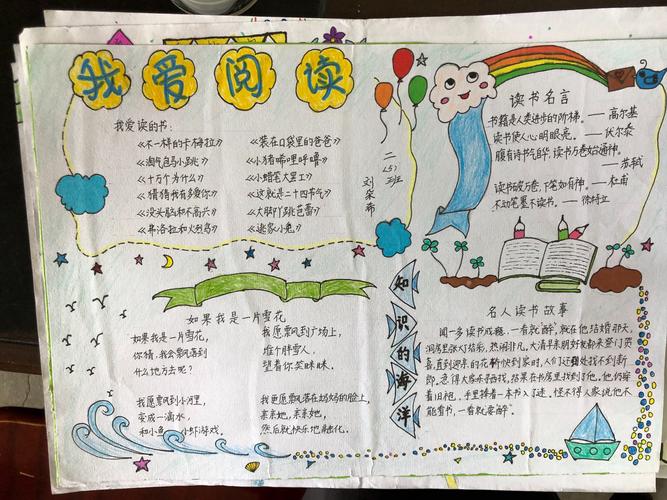 我爱阅读
我爱读的书:
《不一样的卡梅拉》
《装在口袋里的爸爸》
《淘气包马小跳》
《小猪唏哩呼噜》
《十万个为什么》
《小蜡笔大罢工》
《猜猜我有多爱你》
《这就是二十四节气》
《没头脑和不高兴》
《大脚丫跳芭蕾》
《弗洛拉和火烈鸟》
《逃家小兔》
二(5)班
刘采希
读书名言
书籍是人类进步的阶梯。——高尔基
读书使人心明眼亮。——伏尔泰
腹有诗书气自华,读书万卷始通神。
——苏轼
读书破万卷,下笔如有神。——杜甫
不动笔墨不读书。——徐特立
如果我是一片雪花
如果我是一片雪花,
你猜,我会飘落到
什么地方去呢?
我愿飘到小河里,
变成一滴水,
和小鱼小虾游戏。
我愿飘到广场上,
堆个胖雪人,
望着你笑眯眯。
我更愿飘落在妈妈的脸上,
亲亲她,亲亲她,
然后就快乐地融化。
知识的海洋
名人读书故事
闻一多读书成瘾,一看就“醉”,就在他结婚那天,
洞房里张灯结彩,热闹非凡。大清早亲朋好友都来登门贺
喜,直到迎亲的花轿快到家时,人们还到处找不到新
郎。急得大家东寻西找,结果在书房里找到了他。他仍穿
着旧袍,手里捧着一本书入了迷。怪不得人家说他不
能看书,一看就要“醉”。